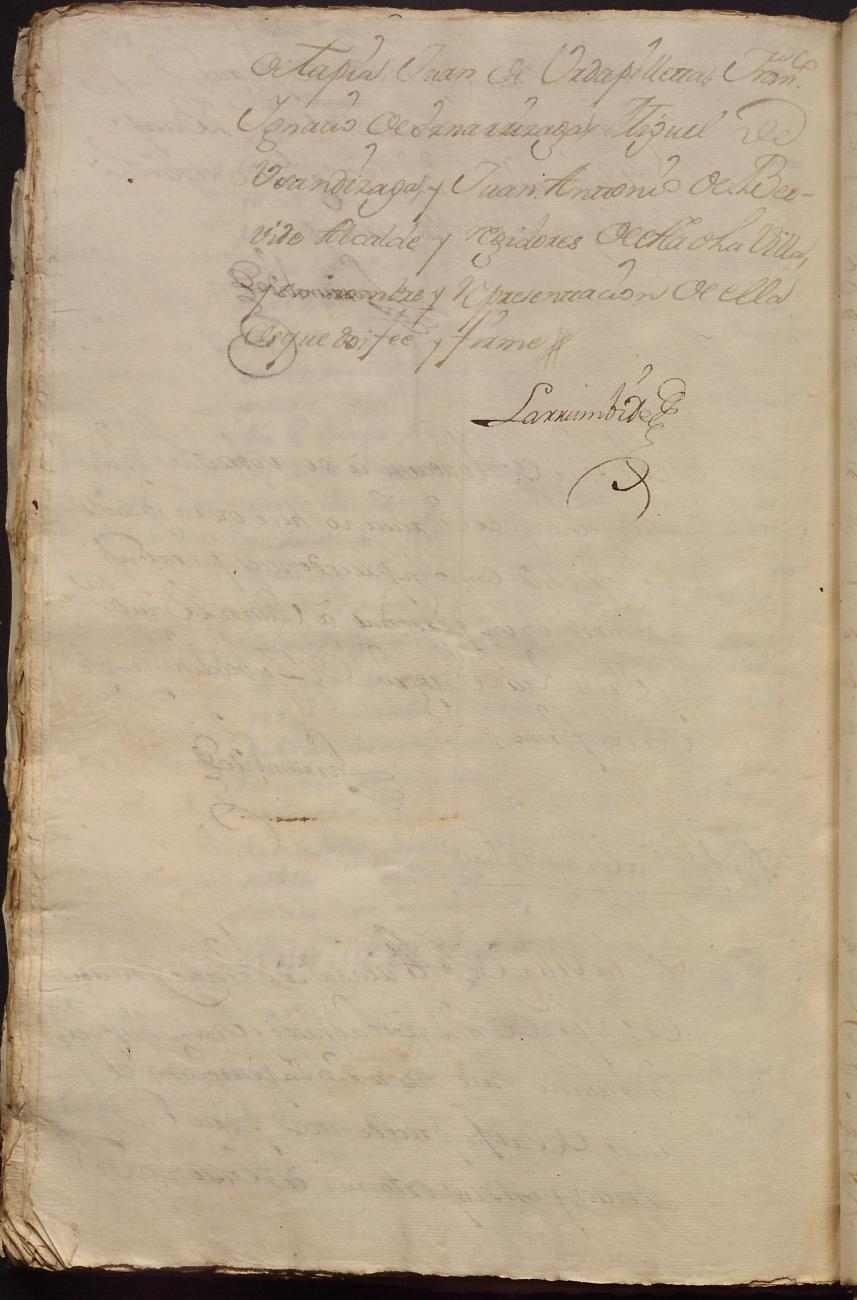 de tapia, Juan de Urdapilleta, Fran.co
Ignacio de Miguel de
Urandizaga, y Juan Antonio de Ber-
vide Alcalde y regidores de esta dha Villa,
y en nombre y representacion de ella
de que doi feé y firme
Larrumbide